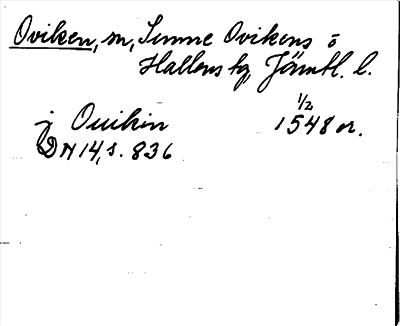 Oviken, sn, Sunne Ovikens o
Hallens tg, Jämtl. l.
j Ouikin 1/2 1548 or.
DN 14, s. 836